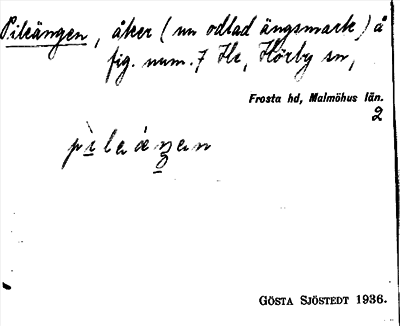 Pileängen, åker (nu odlad ängsmark) å
fig. num. 7 Hr, Hörby sn,
Frosta hd, Malmöhus län.
2
pìleáŋen
GÖSTA SJÖSTEDT 1936.